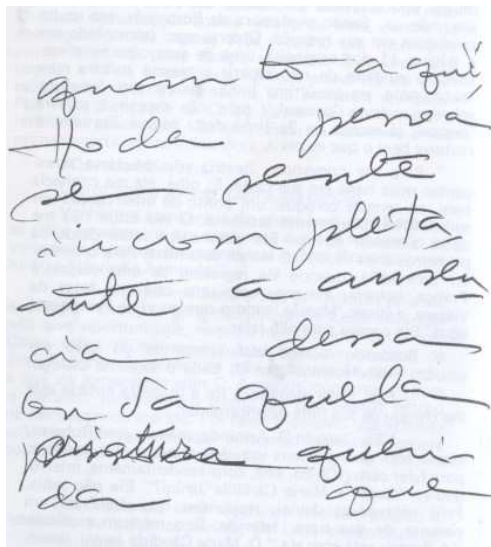 quan to aqui
toda pessoa
se sente
incom pleta
ante a ausên
cia dessa
ou da quella
priatura queri
da que